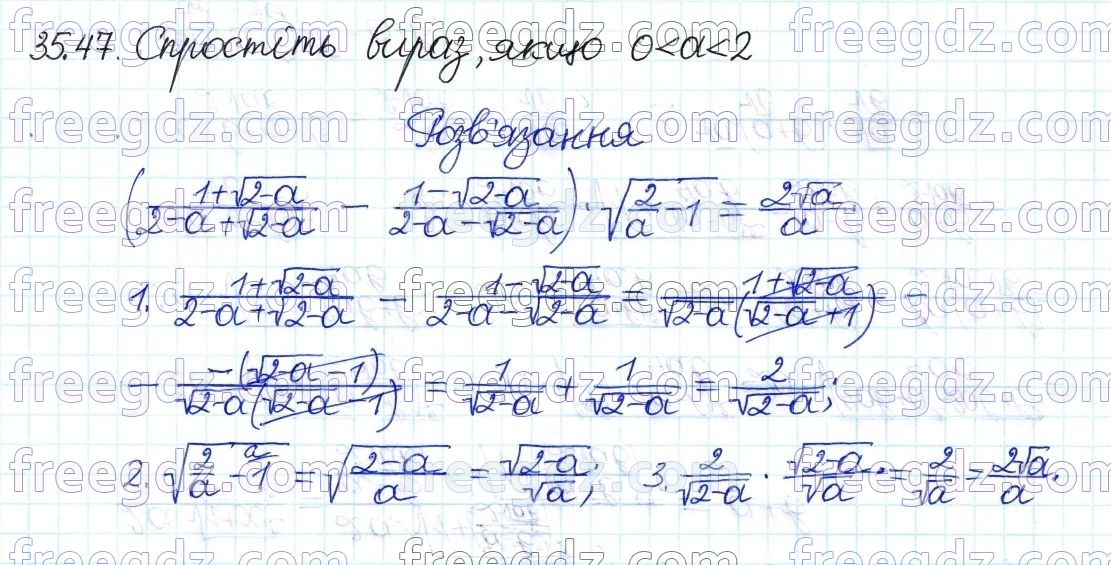 35.47. Спростіть вираз, якщо 0<a<2
Розв'язання
((1+√(2-a))/(2-a+√(2-a)) - (1-√(2-a))/(2-a-√(2-a))) · √(2/a - 1) = 2√a/a
1. (1+√(2-a))/(2-a+√(2-a)) - (1-√(2-a))/(2-a-√(2-a)) = (1+√(2-a))/(√(2-a)(√(2-a)+1)) -
- (-(√(2-a)-1))/(√(2-a)(√(2-a)-1)) = 1/√(2-a) + 1/√(2-a) = 2/√(2-a);
2. √(2/a - 1^a) = √((2-a)/a) = √(2-a)/√a; 3. 2/√(2-a) · √(2-a)/√a = 2/√a = 2√a/a.
freegdz.com